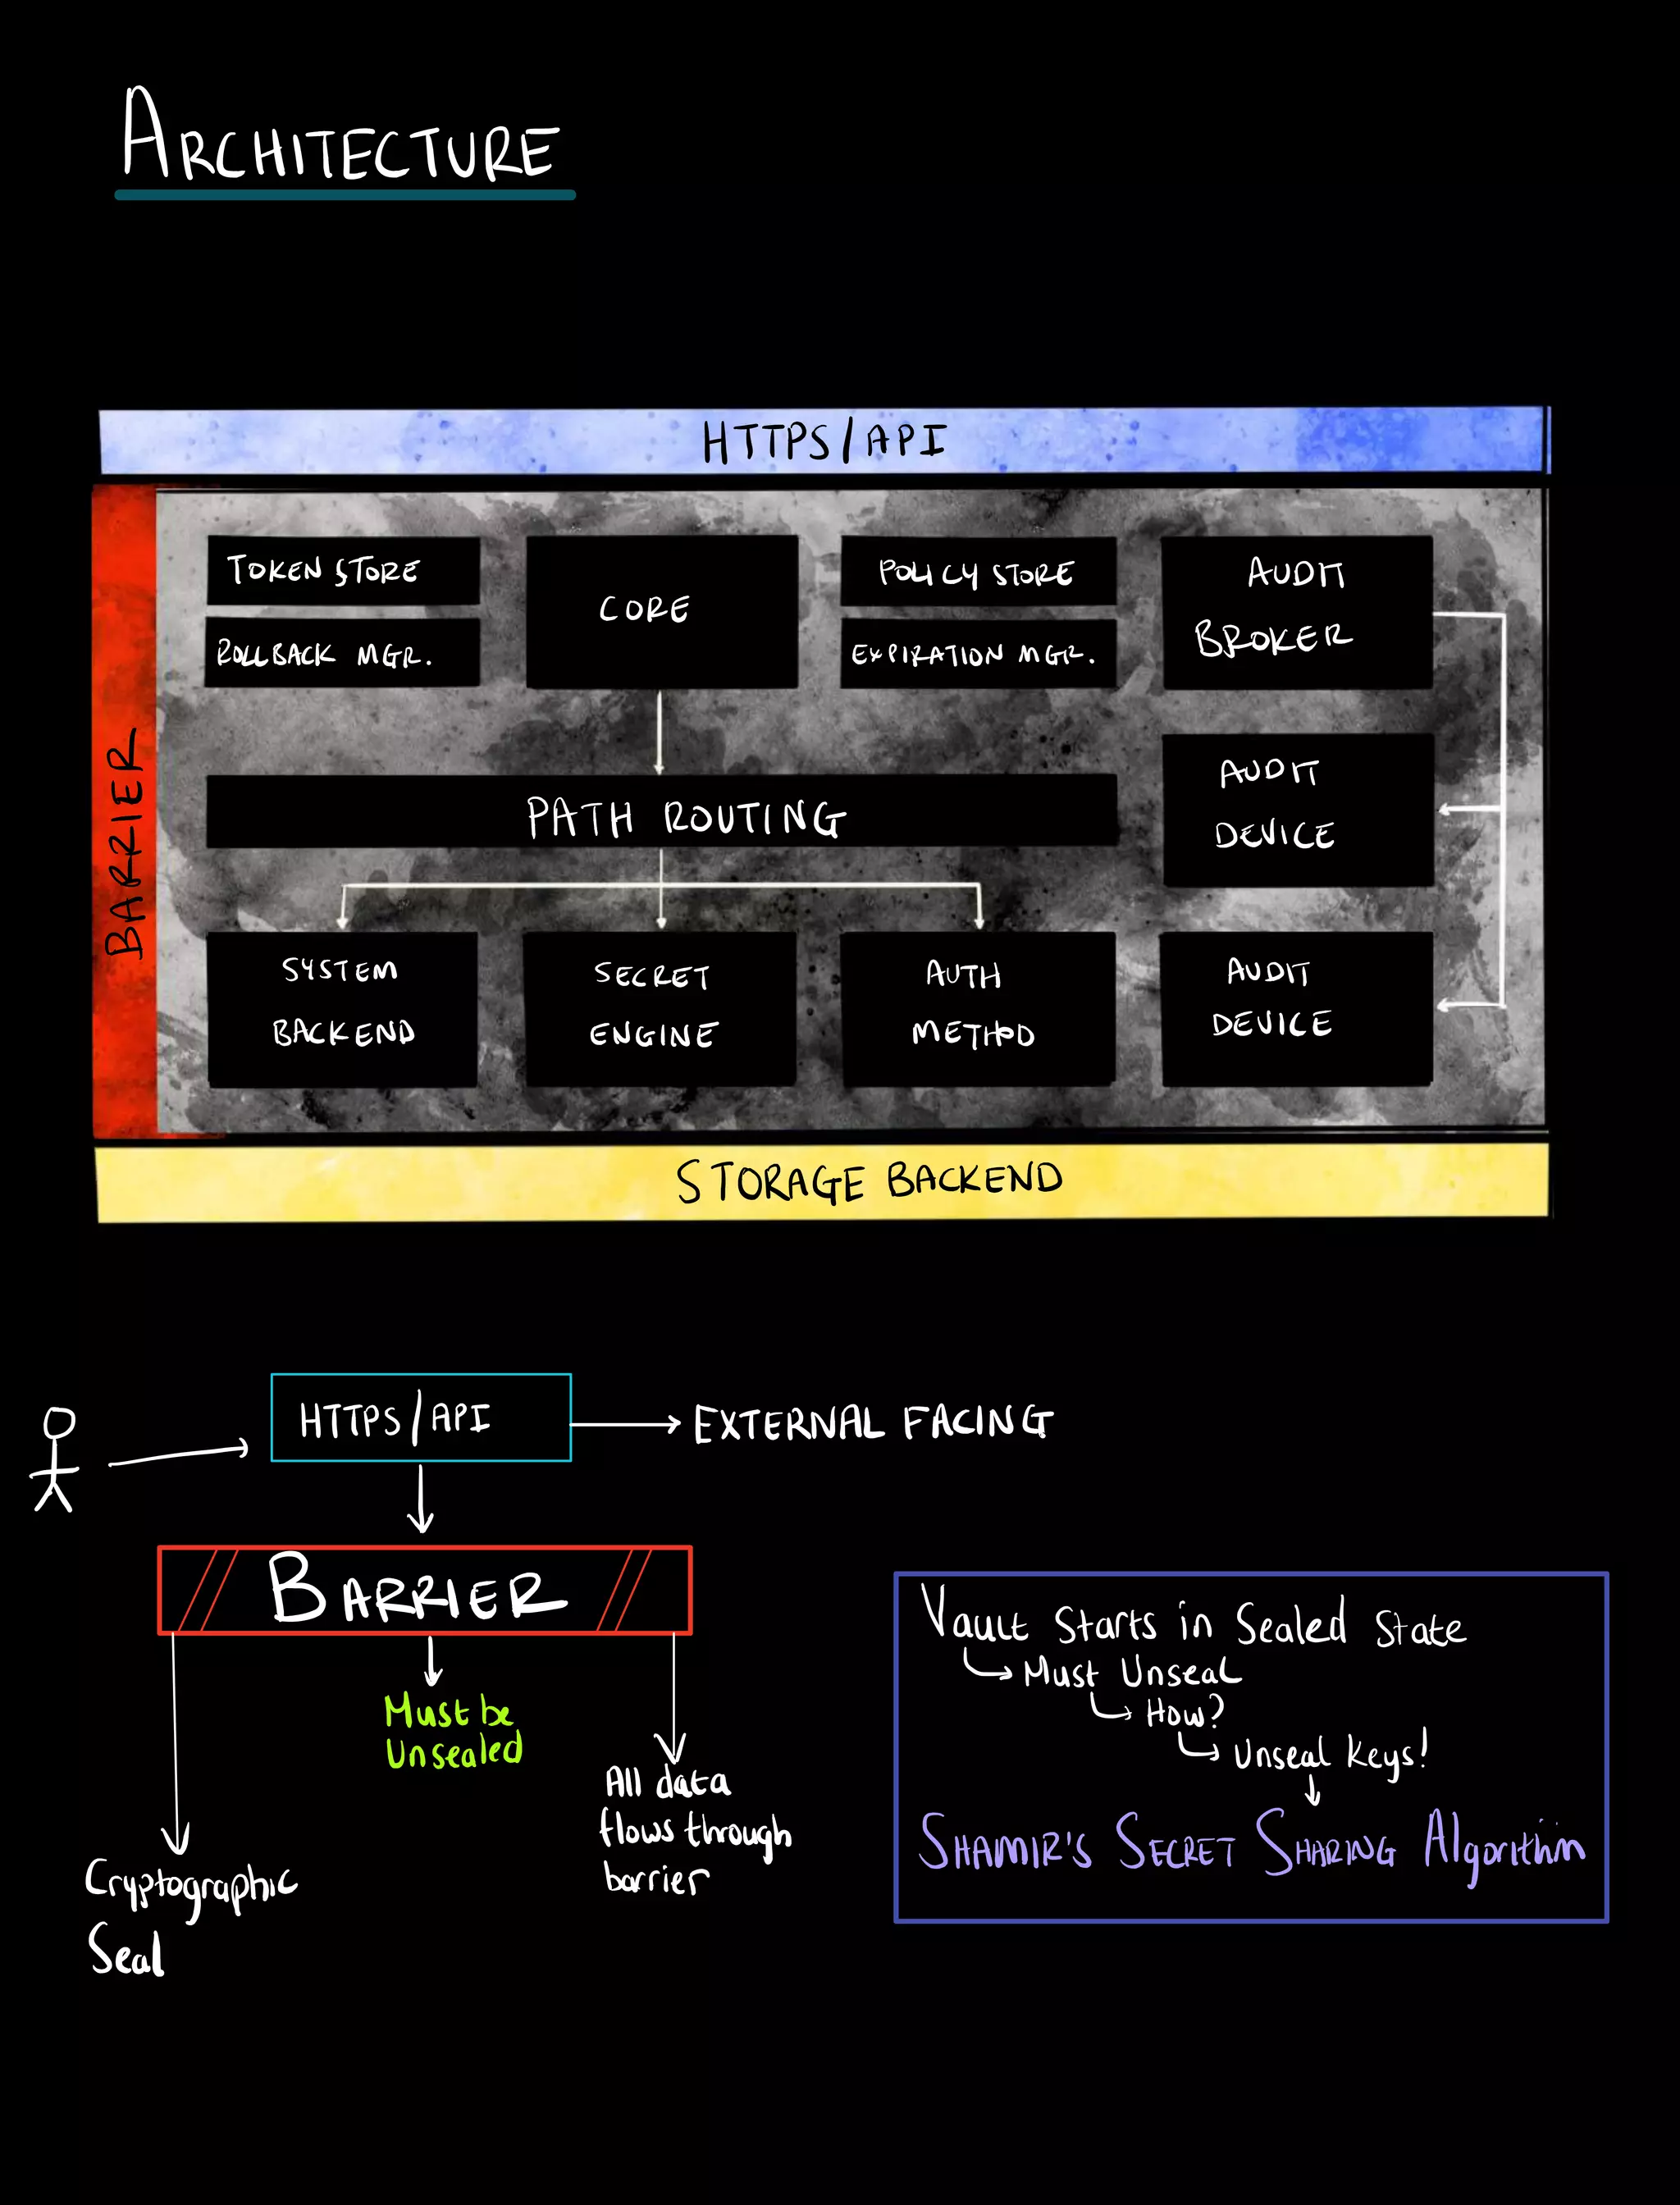 ARCHITECTURE
HTTPS/API
BARRIER
TOKEN STORE
ROLLBACK MGR.
CORE
POLICY STORE
EXPIRATION MGR.
AUDIT
BROKER
PATH ROUTING
AUDIT
DEVICE
SYSTEM
BACKEND
SECRET
ENGINE
AUTH
METHOD
AUDIT
DEVICE
STORAGE BACKEND
HTTPS/API
EXTERNAL FACING
BARRIER
Must be
Unsealed
All data
flows through
barrier
Cryptographic
Seal
Vault Starts in Sealed State
Must Unseal
How?
Unseal Keys!
SHAMIR'S SECRET SHARING Algorithm